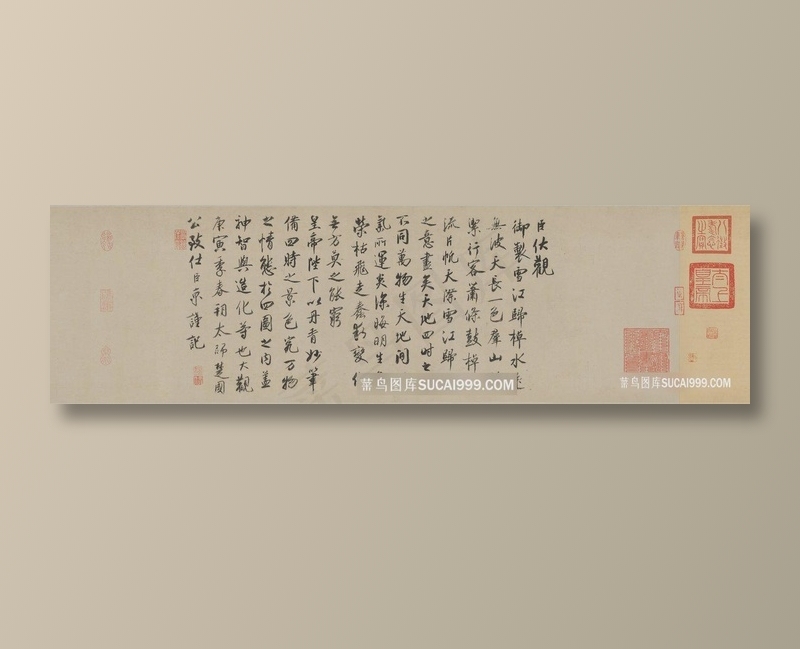 八徵耄念之寶
太上皇帝
臣伏觀
御製雪江歸棹水遠
無波天長一色群山
潔行客蕭條鼓棹
流片帆天際雪江歸
之意盡矣天地四時之
不同萬物生天地間
氣所運炎涼晦明生
榮枯飛走蠢動變
無方莫之能窮
皇帝陛下以丹青妙筆
備四時之景色究萬物
之情態於四圖之內蓋
神智與造化等也大觀
庚寅季春朔太師楚國
公致仕臣京謹記
菜鸟图库SUCAI999.COM
菜鸟图库SUCAI999.COM